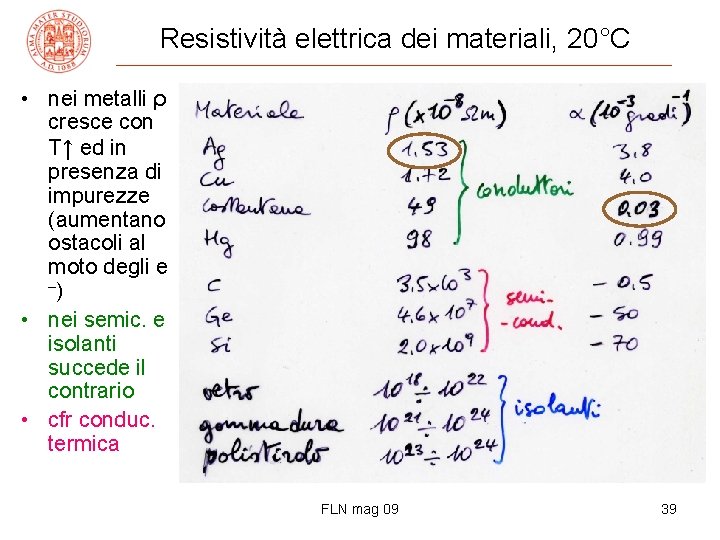 Resistività elettrica dei materiali, 20°C
• nei metalli ρ
cresce con
T↑ ed in
presenza di
impurezze
(aumentano
ostacoli al
moto degli e
–)
• nei semic. e
isolanti
succede il
contrario
• cfr conduc.
termica
Materiale ρ (×10⁻⁸ Ωm) α (10⁻³ gradi⁻¹)
Ag 1.53 3.8
Cu 1.72 4.0
conduttori
costantana 49 0.03
Hg 98 0.99
C 3.5×10³ – 0.5
semi-
Ge 4.6×10⁷ – 50
-cond.
Si 2.0×10⁹ – 70
vetro 10¹⁸ ÷ 10²²
gomma dura 10²¹ ÷ 10²⁴ isolanti
polistirolo 10²³ ÷ 10²⁴
FLN mag 09 39
ALMA MATER STUDIORUM
A.D. 1088